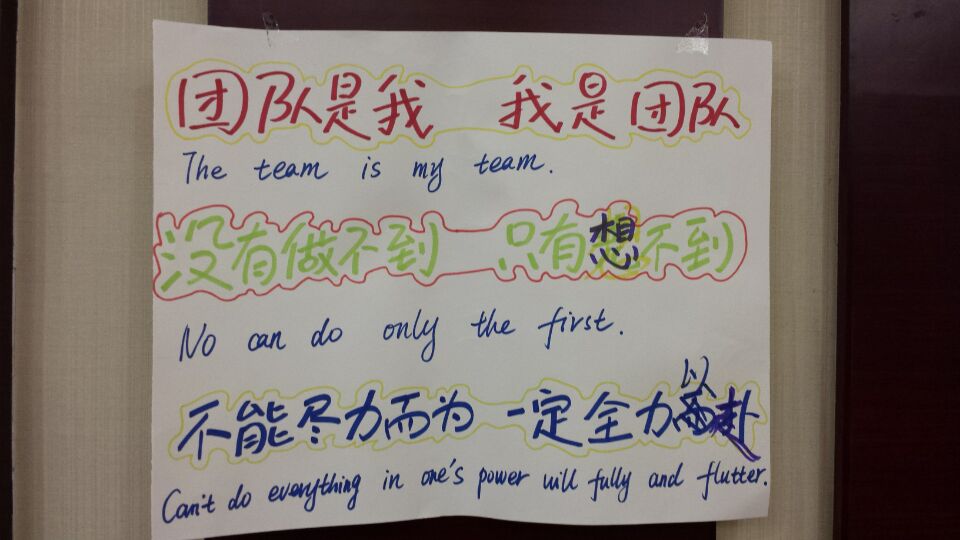 团队是我 我是团队
The team is my team.
没有做不到 只有想不到
No can do only the first.
不能尽力而为 一定全力以赴
Can't do everything in one's power will fully and flutter.